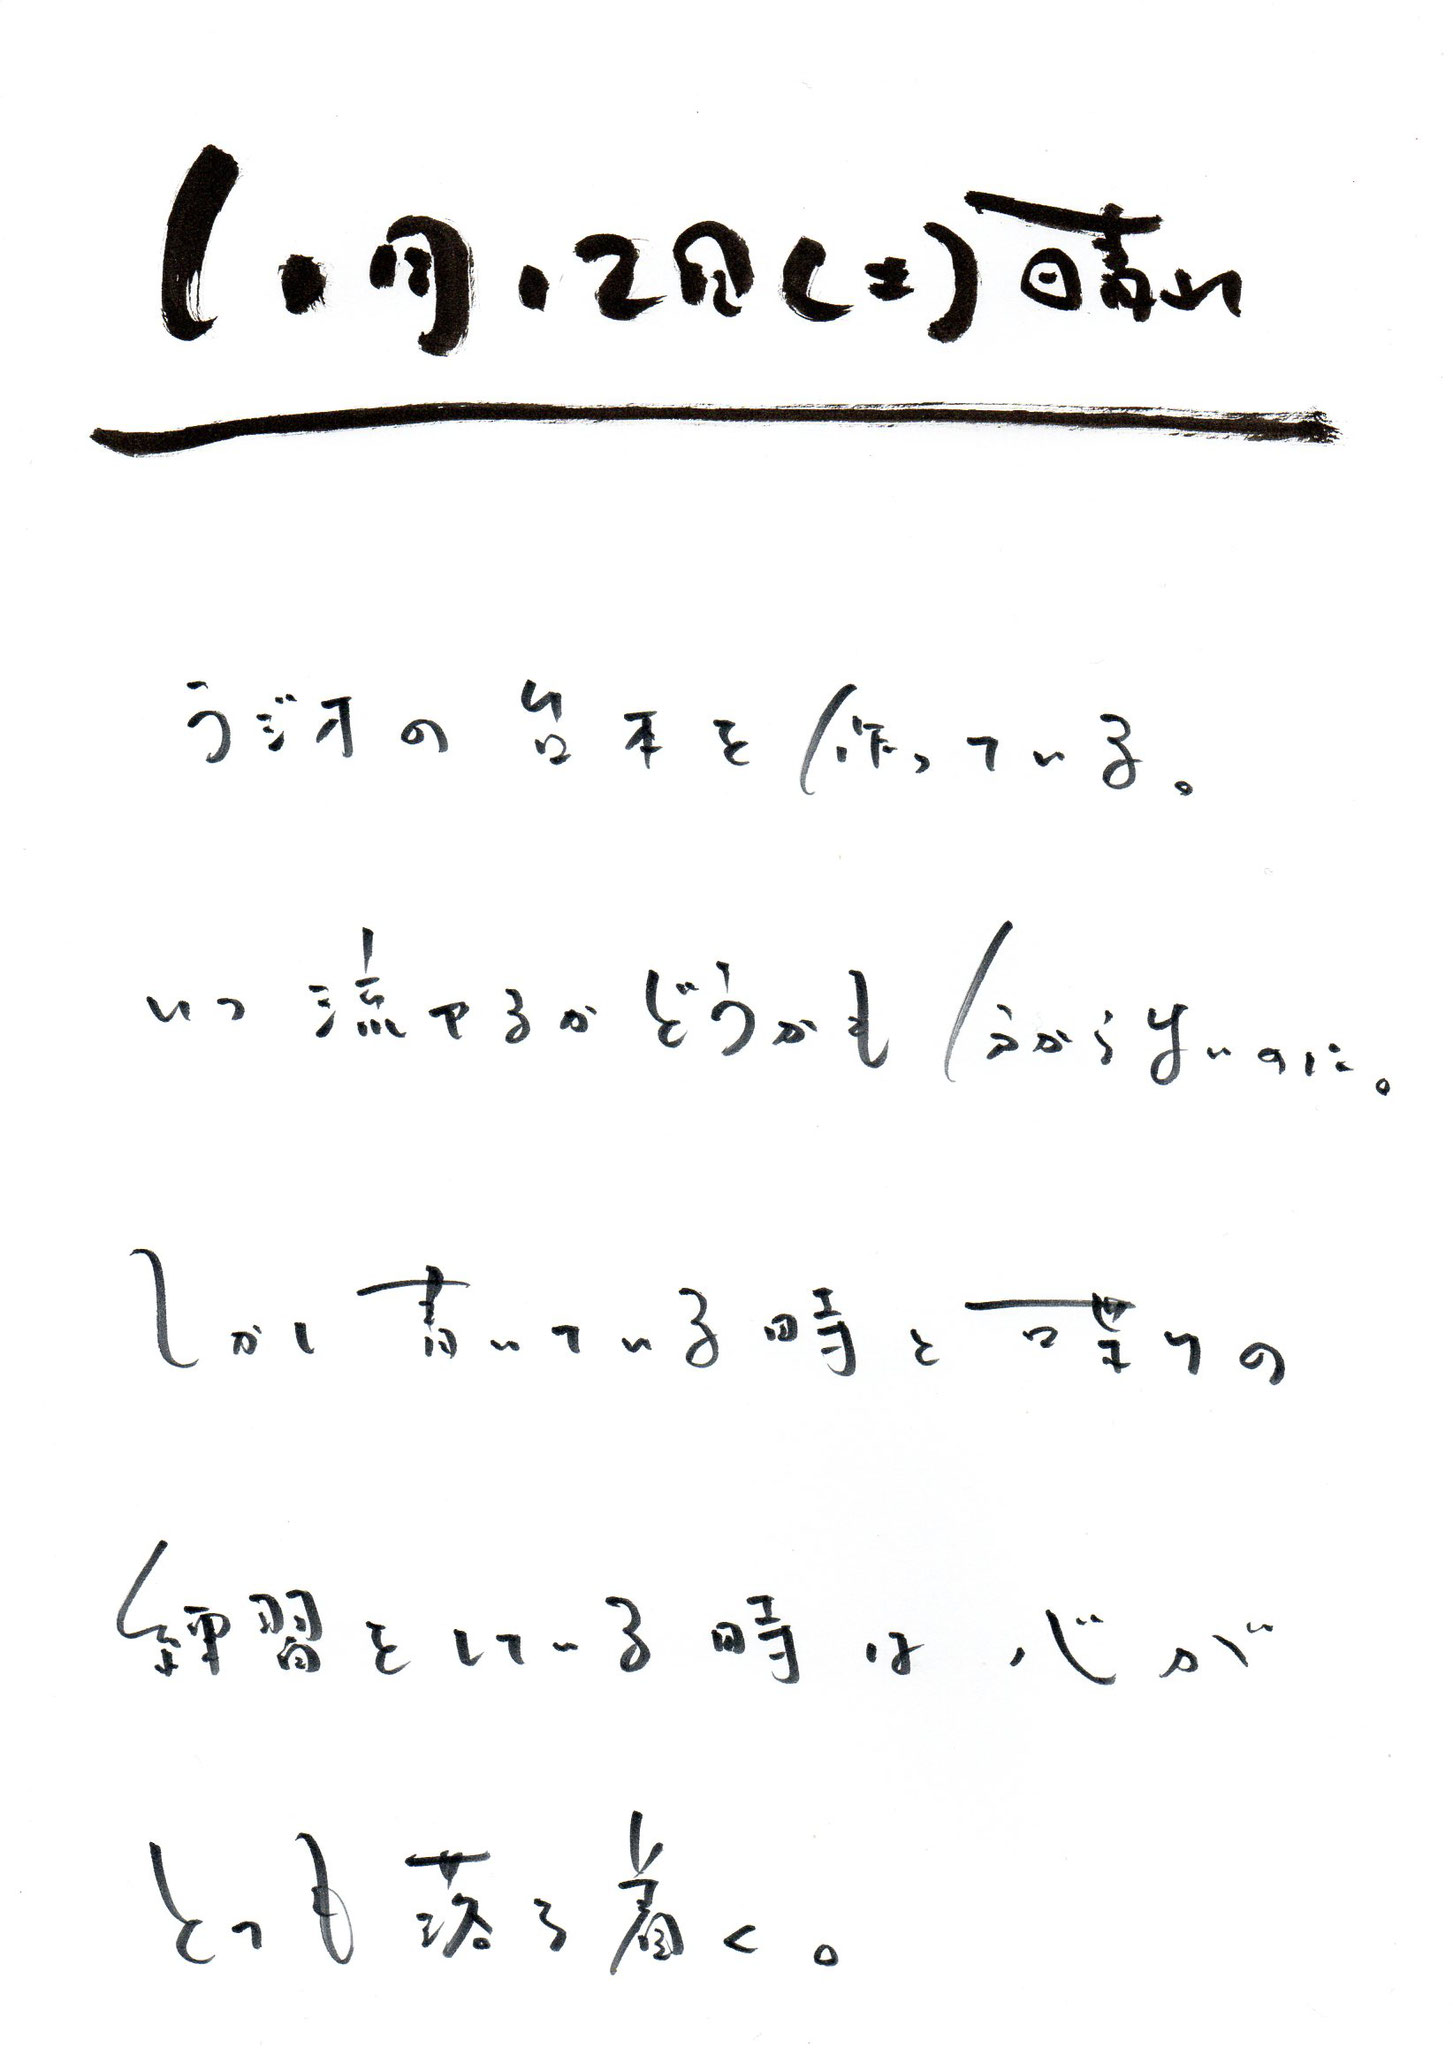 10月12日(土)晴れ
ラジオの台本を作っている。
いつ流せるかどうかも分からないのに。
しかし書いている時と喋りの
練習をしている時は心が
とても落ち着く。